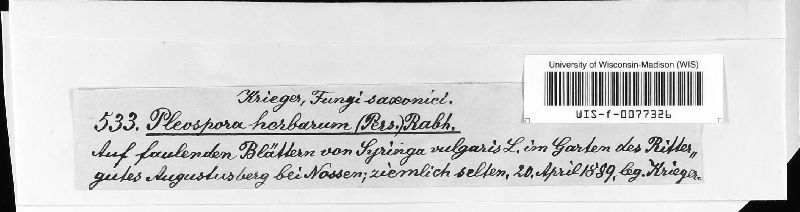 University of Wisconsin-Madison (WIS)
WIS-f-0077326
Krieger, Fungi saxonici.
533. Pleospora herbarum (Pers.) Rabh.
Auf faulenden Blättern von Syringa vulgaris L. im Garten des Ritter„
gutes Augustusberg bei Nossen; ziemlich selten, 20. April 1889, leg. Krieger.